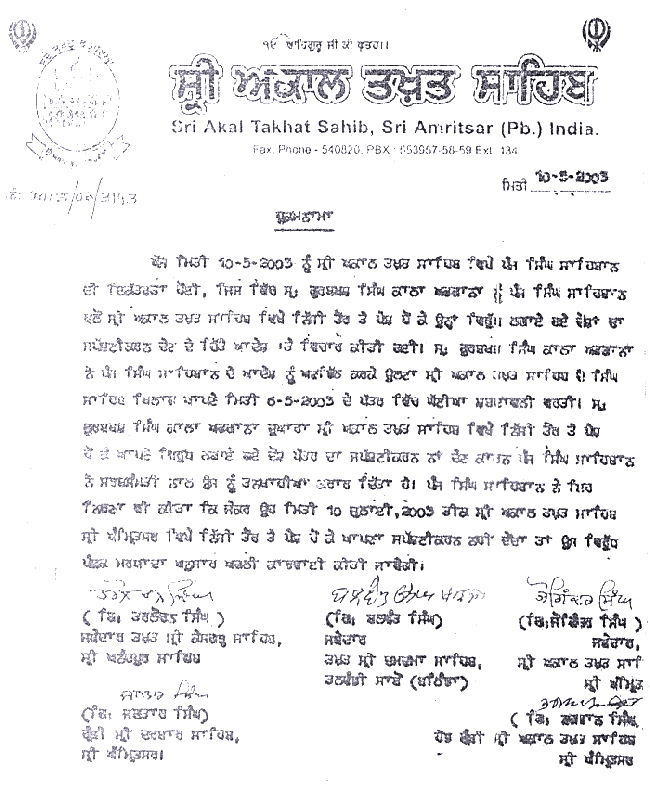 ੴ ਵਾਹਿਗੁਰੂ ਜੀ ਕੀ ਫਤਹ॥
ਸ੍ਰੀ ਅਕਾਲ ਤਖ਼ਤ ਸਾਹਿਬ
Sri Akal Takhat Sahib, Sri Amritsar (Pb.) India.
Fax. Phone - 540820, PBX : 553957-58-59 Ext. 134
ਮਿਤੀ 10-5-2003
ਹੁਕਮਨਾਮਾ
ਅੱਜ ਮਿਤੀ 10-5-2003 ਨੂੰ ਸ੍ਰੀ ਅਕਾਲ ਤਖ਼ਤ ਸਾਹਿਬ ਵਿਖੇ ਪੰਜ ਸਿੰਘ ਸਾਹਿਬਾਨ
ਦੀ ਇਕੱਤਰਤਾ ਹੋਈ, ਜਿਸ ਵਿੱਚ ਸ੍ਰ: ਗੁਰਬਖਸ਼ ਸਿੰਘ ਕਾਲਾ ਅਫਗਾਨਾ ਨੂੰ ਪੰਜ ਸਿੰਘ ਸਾਹਿਬਾਨ
ਵਲੋਂ ਸ੍ਰੀ ਅਕਾਲ ਤਖ਼ਤ ਸਾਹਿਬ ਵਿਖੇ ਨਿੱਜੀ ਤੌਰ ਤੇ ਪੇਸ਼ ਹੋ ਕੇ ਉਨ੍ਹਾਂ ਵਿਰੁੱਧ ਲਗਾਏ ਗਏ ਦੋਸ਼ਾਂ ਦਾ
ਸਪੱਸ਼ਟੀਕਰਨ ਦੇਣ ਦੇ ਦਿੱਤੇ ਆਦੇਸ਼ 'ਤੇ ਵਿਚਾਰ ਕੀਤੀ ਗਈ। ਸ੍ਰ: ਗੁਰਬਖਸ਼ ਸਿੰਘ ਕਾਲਾ ਅਫਗਾਨਾ
ਨੇ ਪੰਜ ਸਿੰਘ ਸਾਹਿਬਾਨ ਦੇ ਆਦੇਸ਼ ਨੂੰ ਅਣਡਿੱਠ ਕਰਕੇ ਉਲਟਾ ਸ੍ਰੀ ਅਕਾਲ ਤਖ਼ਤ ਸਾਹਿਬ ਦੇ ਸਿੰਘ
ਸਾਹਿਬ ਖਿਲਾਫ ਆਪਣੇ ਮਿਤੀ 6-5-2003 ਦੇ ਪੱਤਰ ਵਿੱਚ ਘਟੀਆ ਸ਼ਬਦਾਵਲੀ ਵਰਤੀ। ਸ੍ਰ:
ਗੁਰਬਖਸ਼ ਸਿੰਘ ਕਾਲਾ ਅਫਗਾਨਾ ਦੁਆਰਾ ਸ੍ਰੀ ਅਕਾਲ ਤਖ਼ਤ ਸਾਹਿਬ ਵਿਖੇ ਨਿੱਜੀ ਤੌਰ ਤੇ ਪੇਸ਼
ਹੋ ਕੇ ਆਪਣੇ ਵਿਰੁੱਧ ਲਗਾਏ ਗਏ ਦੋਸ਼ ਪੱਤਰ ਦਾ ਸਪੱਸ਼ਟੀਕਰਨ ਨਾਂ ਦੇਣ ਕਾਰਨ ਪੰਜ ਸਿੰਘ ਸਾਹਿਬਾਨ
ਨੇ ਸਰਬਸੰਮਤੀ ਨਾਲ ਉਸ ਨੂੰ ਤਨਖਾਹੀਆ ਕਰਾਰ ਦਿੱਤਾ ਹੈ। ਪੰਜ ਸਿੰਘ ਸਾਹਿਬਾਨ ਨੇ ਇਹ
ਨਿਰਣਾ ਵੀ ਕੀਤਾ ਕਿ ਜੇਕਰ ਉਹ ਮਿਤੀ 10 ਜੁਲਾਈ, 2003 ਤੀਕ ਸ੍ਰੀ ਅਕਾਲ ਤਖ਼ਤ ਸਾਹਿਬ
ਸ੍ਰੀ ਅੰਮ੍ਰਿਤਸਰ ਵਿਖੇ ਨਿੱਜੀ ਤੌਰ ਤੇ ਪੇਸ਼ ਹੋ ਕੇ ਆਪਣਾ ਸਪੱਸ਼ਟੀਕਰਨ ਨਹੀਂ ਦੇਂਦਾ ਤਾਂ ਉਸ ਵਿਰੁੱਧ
ਪੰਥਕ ਮਰਯਾਦਾ ਅਨੁਸਾਰ ਅਗਲੀ ਕਾਰਵਾਈ ਕੀਤੀ ਜਾਵੇਗੀ।
ਤਰਲੋਚਨ ਸਿੰਘ ਬਲਵੰਤ ਸਿੰਘ ਜੋਗਿੰਦਰ ਸਿੰਘ
(ਗਿ: ਤਰਲੋਚਨ ਸਿੰਘ) (ਗਿ: ਬਲਵੰਤ ਸਿੰਘ) (ਗਿ:ਜੋਗਿੰਦਰ ਸਿੰਘ)
ਜਥੇਦਾਰ ਤਖ਼ਤ ਸ੍ਰੀ ਕੇਸਗੜ੍ਹ ਸਾਹਿਬ, ਜਥੇਦਾਰ ਜਥੇਦਾਰ,
ਸ੍ਰੀ ਅਨੰਦਪੁਰ ਸਾਹਿਬ ਤਖ਼ਤ ਸ੍ਰੀ ਦਮਦਮਾ ਸਾਹਿਬ, ਸ੍ਰੀ ਅਕਾਲ ਤਖ਼ਤ ਸਾਹਿ
ਤਲਵੰਡੀ ਸਾਬੋ (ਬਠਿੰਡਾ) ਸ੍ਰੀ ਅੰਮ੍ਰਿਤ
ਜਗਤਾਰ ਸਿੰਘ
(ਗਿ: ਜਗਤਾਰ ਸਿੰਘ) (ਗਿ: ਭਗਵਾਨ ਸਿੰਘ)
ਗ੍ਰੰਥੀ ਸ੍ਰੀ ਦਰਬਾਰ ਸਾਹਿਬ, ਹੈਡ ਗ੍ਰੰਥੀ ਸ੍ਰੀ ਅਕਾਲ ਤਖ਼ਤ ਸਾਹਿਬ
ਸ੍ਰੀ ਅੰਮ੍ਰਿਤਸਰ। ਸ੍ਰੀ ਅੰਮ੍ਰਿਤਸਰ